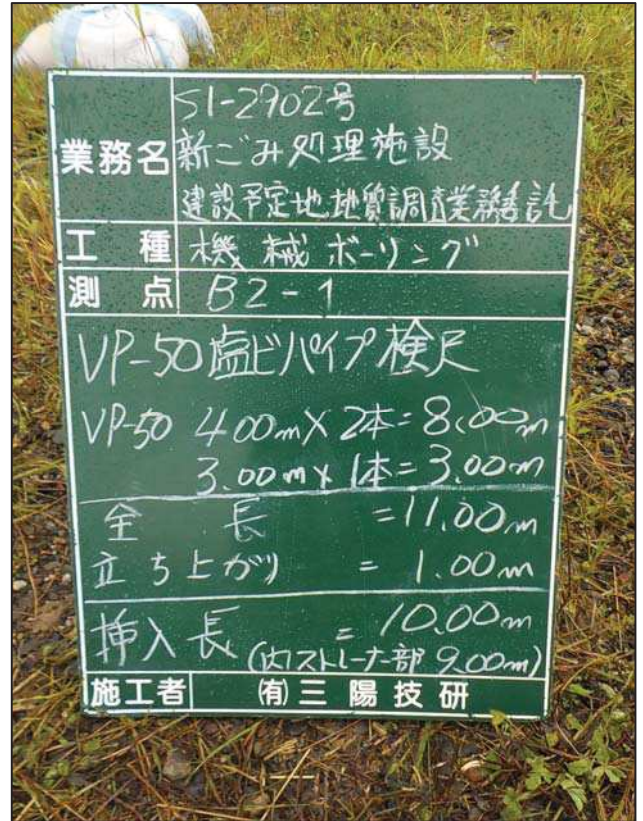 S1-2902号
業務名 新ごみ処理施設
建設予定地地質調査業務委託
工種 機械ボーリング
測点 B2-1
VP-50 塩ビパイプ検尺
VP-50 4.00m×2本=8.00m
3.00m×1本=3.00m
全長 =11.00m
立ち上がり =1.00m
挿入長 =10.00m
(内ストレーナー部 9.00m)
施工者 (有)三陽技研